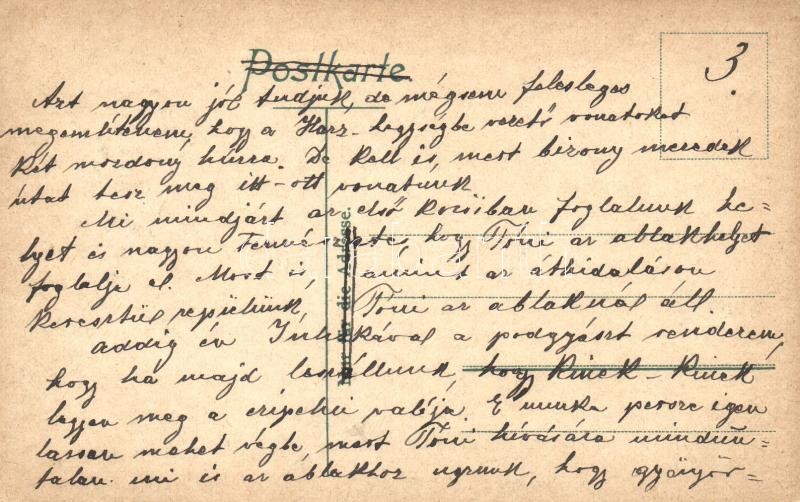 Postkarte
3.
Azt nagyon jól tudjuk, de mégsem felesleges
megemlitenem, hogy a Harz-hegységbe vezető vonatokat
két mozdony húzza. De kell is, mert bizony meredek
útat tesz meg itt-ott vonatunk
Mi mindjárt az első kocsiban foglalunk he-
lyet és nagyon természetes, hogy Tóni az ablakhelyet
foglalja el. Most is, amint az áthidaláson
keresztül repülünk, Tóni az ablaknál áll.
addig én a podgyászt rendezem,
hogy ha majd leszállunk, hogy kinek-kinek
legyen meg a czipelni valója. E munka persze igen
lassan mehet végbe, mert Tóni hívására mindun-
talan mi is az ablakhoz ugrunk, hogy gyönyör-
Nur für die Adresse.